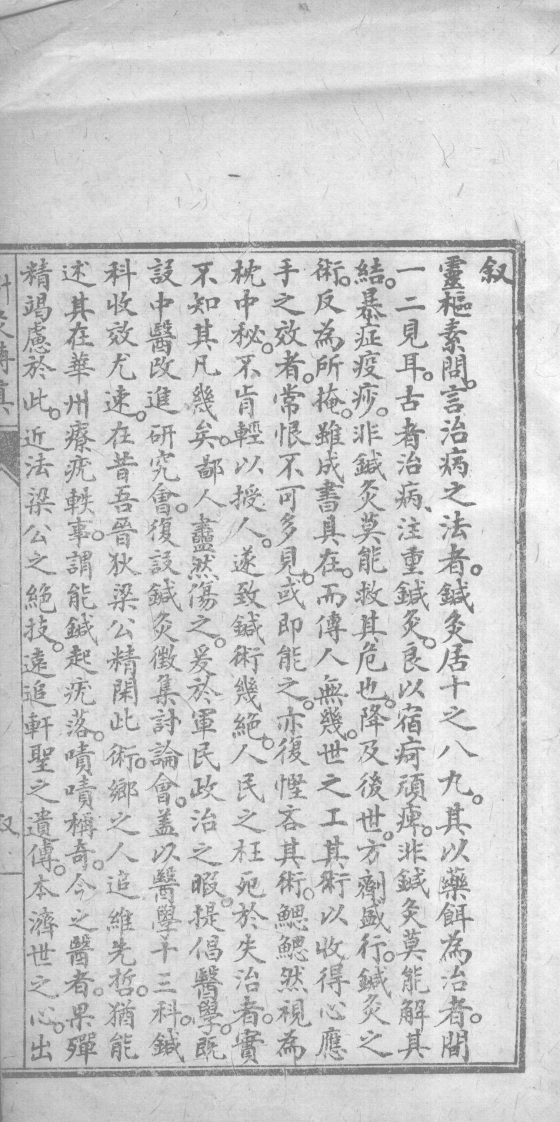 叙
靈樞素問。言治病之法者。鍼灸居十之八九。其以藥餌為治者。間
一二見耳。古者治病、注重鍼灸。良以宿疴頑痺。非鍼灸莫能解其
結。暴症疫痧。非鍼灸莫能救其危也。降及後世。方劑盛行。鍼灸之
術。反為所掩。雖成書具在。而傳人無幾。世之工其術以收得心應
手之效者。常恨不可多見。或即能之。亦復慳吝其術。鰓鰓然視為
枕中秘。不肯輕以授人。遂致鍼術幾絕。人民之枉死於失治者。實
不知其凡幾矣。鄙人衋然傷之。爰於軍民政治之暇。提倡醫學。既
設中醫改進研究會。復設鍼灸徵集討論會。蓋以醫學十三科。鍼
科收效尤速。在昔吾晉狄梁公精閑此術。鄉之人追維先哲。猶能
述其在華州療疣軼事。謂能鍼起疣落。嘖嘖稱奇。今之醫者。果殫
精竭慮於此。近法梁公之絕技。遠追軒聖之遺傳。本濟世之心。出
灸傳真
叙